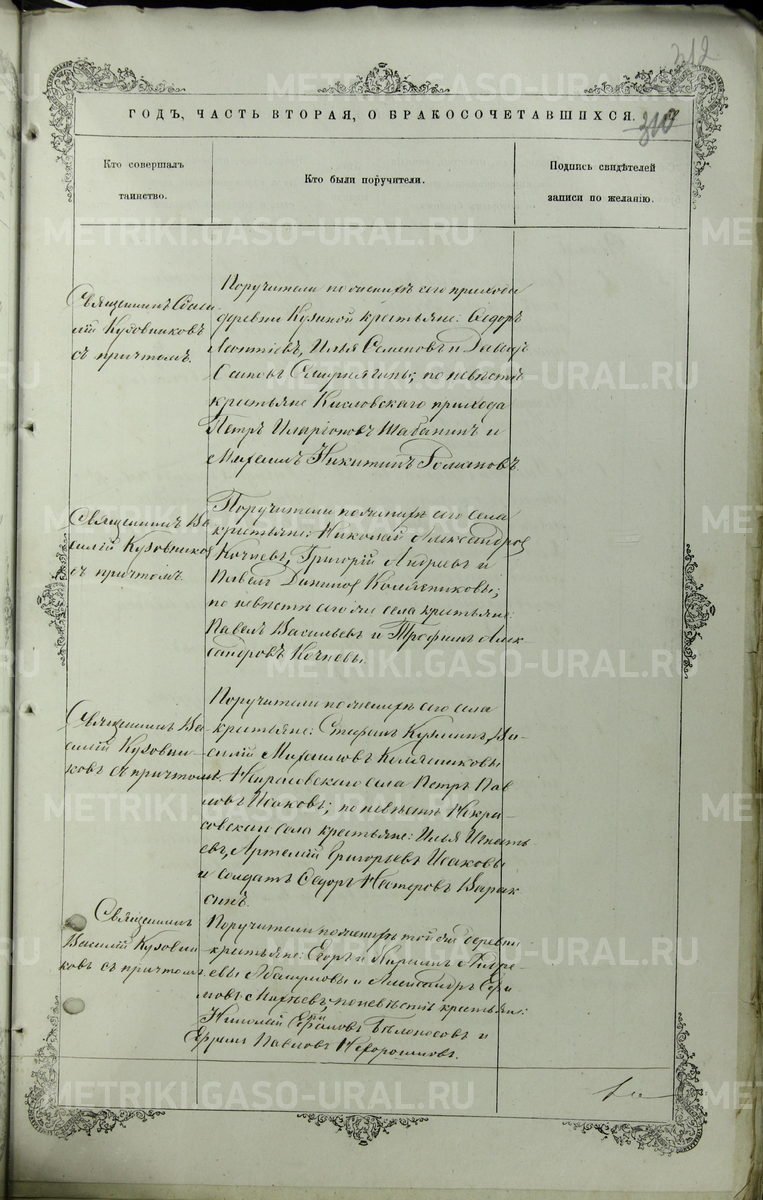 312
ГОДЪ, ЧАСТЬ ВТОРАЯ, О БРАКОСОЧЕТАВШИХСЯ.
310
Кто совершалъ
таинство.
Кто были поручители.
Подпись свидѣтелей
записи по желанію.
Священникъ Васи
лій Кузовниковъ
съ причтомъ.
Поручители по женихѣ сего прихода
деревни Кузиной крестьяне: Ѳедоръ
Леонтіевъ, Илья Семеновъ и Давидъ
по невѣстѣ
крестьяне Кисловскаго прихода
Петръ Иларіоновъ Шабалинъ и
Михаилъ Никитинъ Романовъ
Священникъ Ва
силій Кузовников
съ причтомъ
Поручители по женихѣ сего села
крестьяне: Николай Александров
Кочневъ, Григорій Андреев и
Павелъ Данилов Колясниковы;
по невѣсте сего же села крестьяне:
Павелъ Васильевъ и Трофимъ Алек
сандровъ Кочневы.
Священникъ Ва
силій Кузовни
ковъ съ причтомъ.
Поручители по женихѣ сего села
крестьяне: Стефанъ Кузминъ, Ва
силій Михаиловъ Колясниковы
и Некрасовскаго села Петръ Пав
ловъ Исаковъ; по невѣстѣ Некра
совскаго села крестьяне: Илья Игнать
евъ, Артемій Григорьевъ Исаковы
и солдатъ Ѳедоръ Нестеровъ Варак
синъ.
Священникъ
Василій Кузовни
ковъ съ причтомъ.
Поручители по женихѣ той же деревни
крестьяне: Егоръ и Кирилъ Андре
евы и Александръ
по невѣстѣ крестьяне:
Николай Бѣлоносовъ и
Ефимъ Павловъ Нехорошковъ.
METRIKI.GASO-URAL.RU